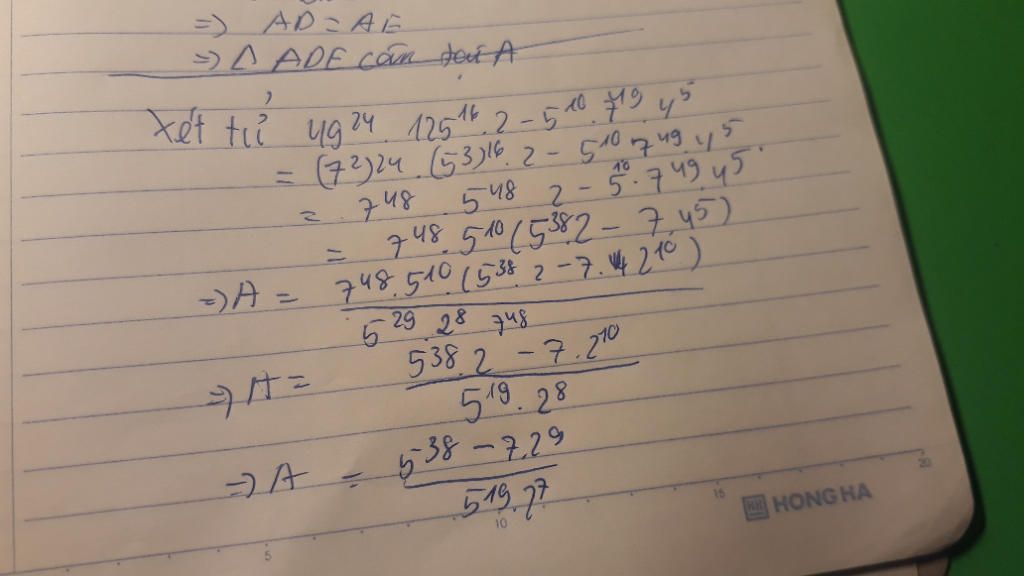 ⇒ AD = AE
⇒ Δ ADE cân tại A
Xét tử 49²⁴ . 125¹⁶ . 2 – 5¹⁰ . 7⁴⁹ . 4⁵
= (7²)²⁴ . (5³)¹⁶ . 2 – 5¹⁰ 7⁴⁹ . 4⁵
= 7⁴⁸ . 5⁴⁸ 2 – 5¹⁰ . 7⁴⁹ . 4⁵
= 7⁴⁸ . 5¹⁰ (5³⁸.2 – 7.4⁵)
⇒ A = 7⁴⁸. 5¹⁰. (5³⁸. 2 – 7. 2¹⁰)
5²⁹ . 2⁸ 7⁴⁸
⇒ A = 5³⁸. 2 – 7. 2¹⁰
5¹⁹ . 2⁸
⇒ A = 5³⁸ – 7.2⁹
5¹⁹. 2⁷
5 10 15 20
HH HONG HA